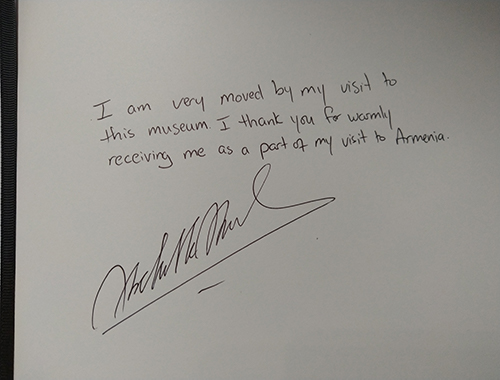 I am very moved by my visit to
this museum. I thank you for warmly
receiving me as a part of my visit to Armenia.